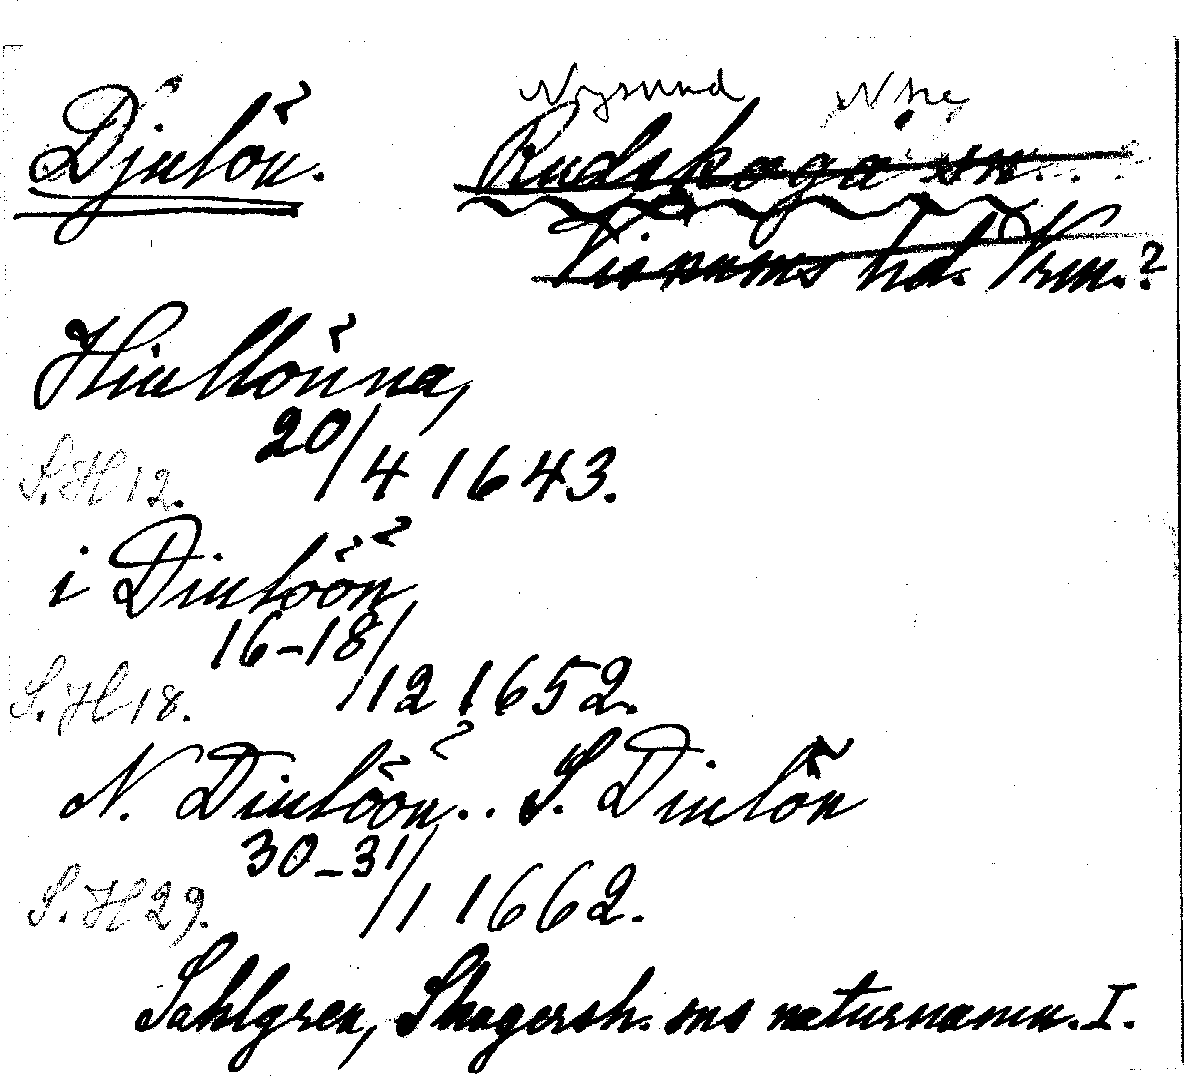 Djulön.
Nysund Nke
Rudskoga sn.
Visnums hd. Vrm.?
Hiullönna,
20/4 1643.
S.H 12.
i Diulöön
16-18/12 1652.
S.H 18.
N. Diulöön.. S. Diulön
30-31/1 1662.
S.H 29.
Sahlgren, Skagersh. sns naturnamn. I.